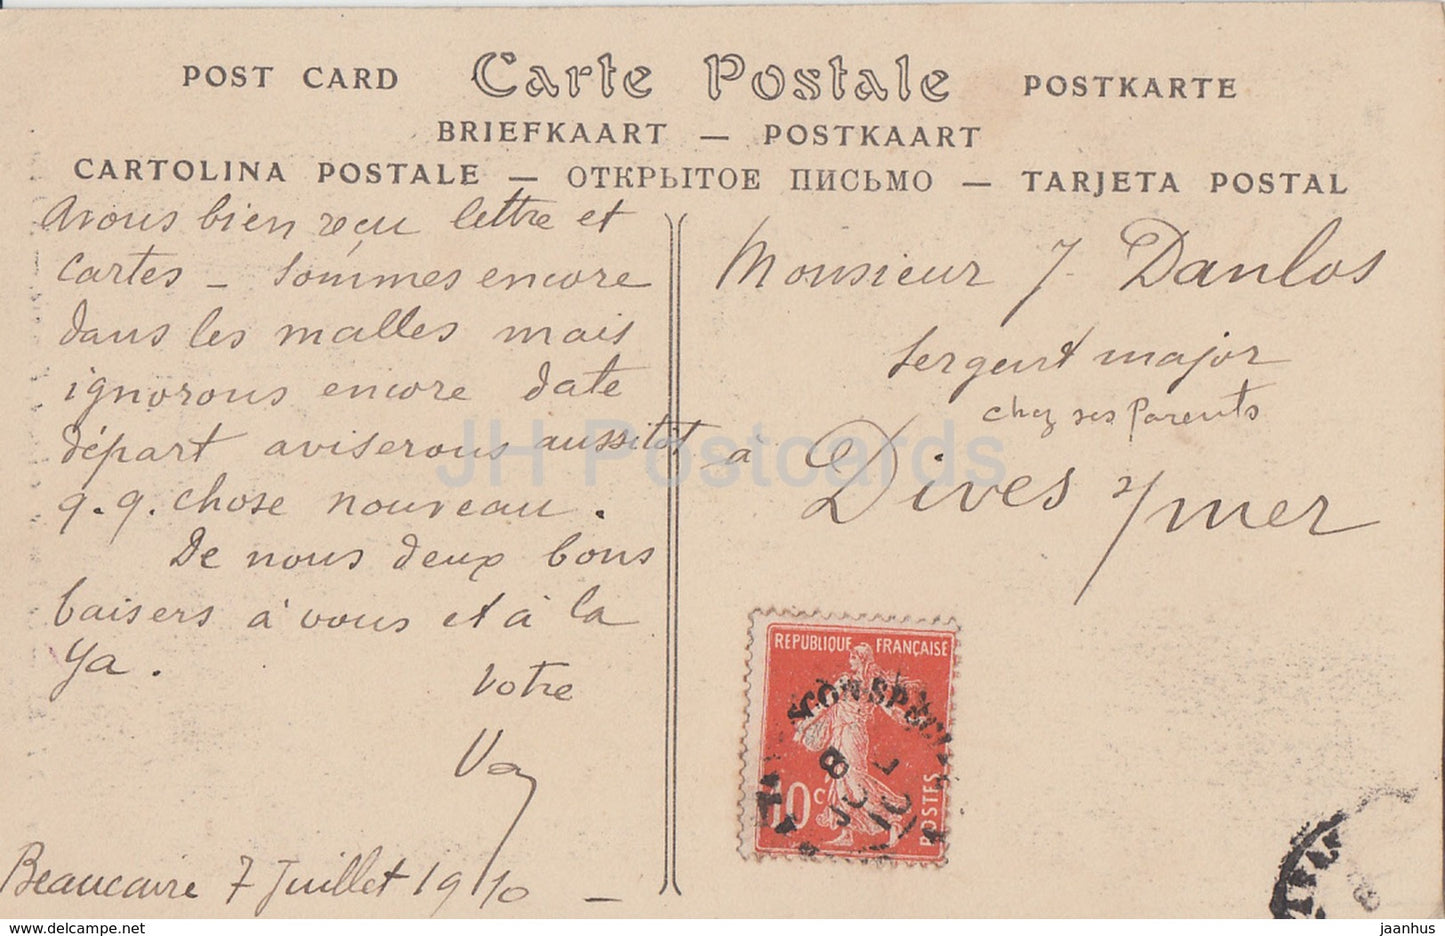 POST CARD Carte Postale POSTKARTE
BRIEFKAART — POSTKAART
CARTOLINA POSTALE — ОТКРЫТОЕ ПИСЬМО — TARJETA POSTAL
Avons bien reçu lettre et
cartes - sommes encore
dans les malles mais
ignorons encore date
départ aviserons aussitôt
q.q. chose nouveau.
De nous deux bons
baisers à vous et à la
Ya.
Votre
Beaucaire 7 Juillet 1910 -
Monsieur J Danlos
Sergent major
chez ses Parents
à Dives s/mer
REPUBLIQUE FRANÇAISE
10c
POSTES
8
JUIL
10
JH Postcards
www.delcampe.net
jaanhus